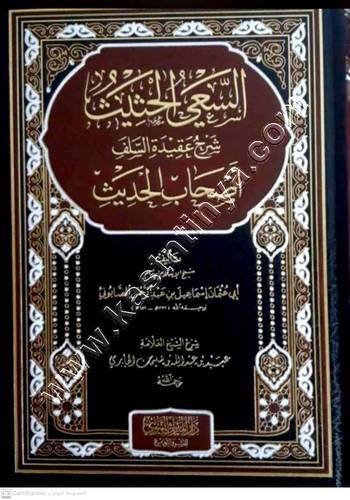 السَّعْيُ الحَثِيثُ
شَرْحُ عَقِيدَةِ السَّلَفِ
أَصْحَابِ الحَدِيثِ
تأليف
شيخ الإسلام
أَبِي عُثْمَانَ إِسْمَاعِيلَ بنِ عَبْدِ الرَّحْمَنِ الصَّابُونِيِّ
رحمه الله
شرح الشيخ العلامة
عبيد بن عبد الله بن سليمان الجابري
رحمه الله
www.kashtinya.com
CS CamScanner الممسوحة ضوئيا بـ